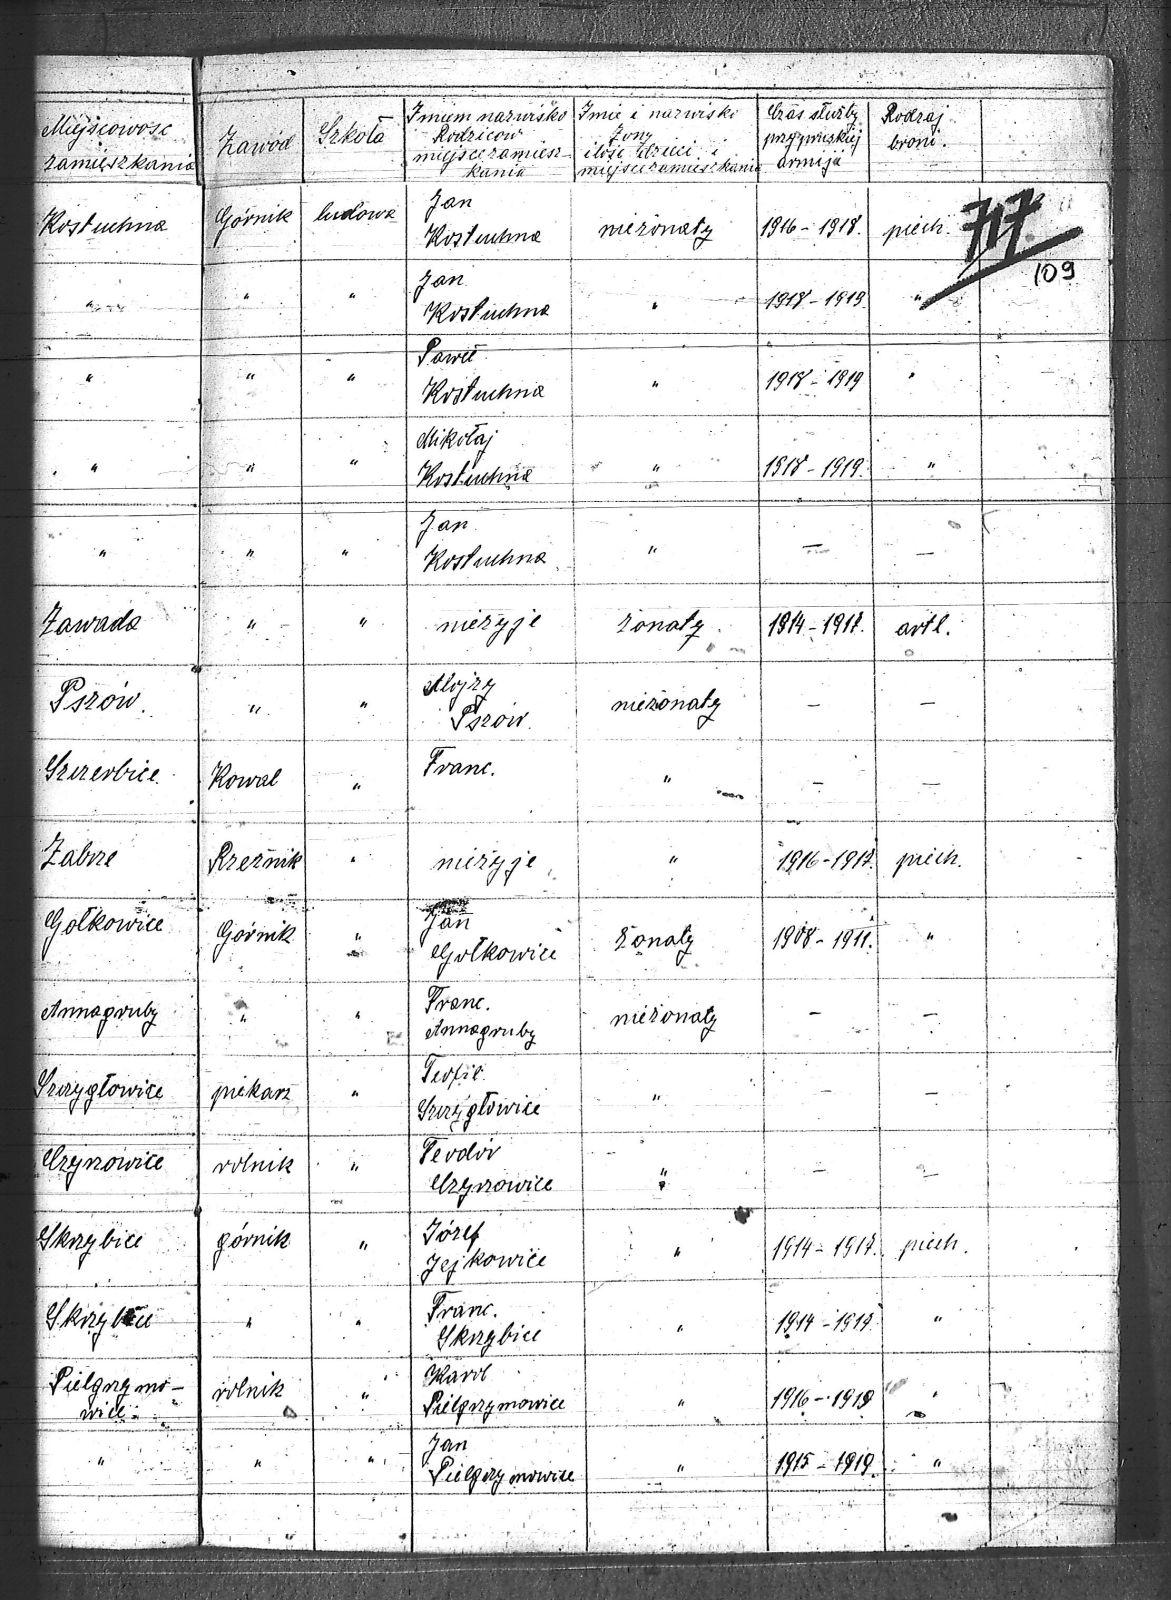 Miejscowość zamieszkania Zawód Szkoła Imiem nazwisko Rodziców miejsce zamieszkania Imie i nazwisko żony ilość dzieci i miejsce zamieszkania Czas służby przy armija Rodzaj broni.
Kostuchna Górnik ludowa Jan Kostuchna nieżonaty 1916 - 1918. piech. 717
109
" " " Jan Kostuchna " 1918 - 1919 "
" " " Paweł Kostuchna " 1918 - 1919 "
" " " Mikołaj Kostuchna " 1918 - 1919. "
" " " Jan Kostuchna " — —
Zawada " " nieżyje żonaty 1914 - 1917. artl.
Pszów. " " Alojzy Pszów. nieżonaty — —
Szczerbice Kowal " Franc. " — —
Zabrze Rzeźnik " nieżyje " 1916 - 1917. piech.
Gołkowice Górnik " Jan Gołkowice żonaty 1908 - 1911. "
Annagruby " " Franc. Annagruby nieżonaty — —
Szczygłowice piekarz " Teofil Szczygłowice " — —
Czyżowice rolnik " Teodór Czyżowice " — —
Skrzybice górnik " Józef Jejkowice " 1914 - 1917. piech.
Skrzybice " " Franc. Skrzybice " 1914 - 1919 "
Pielgrzymowice rolnik " Karol Pielgrzymowice " 1916 - 1919 "
" " " Jan Pielgrzymowice " 1915 - 1919. "